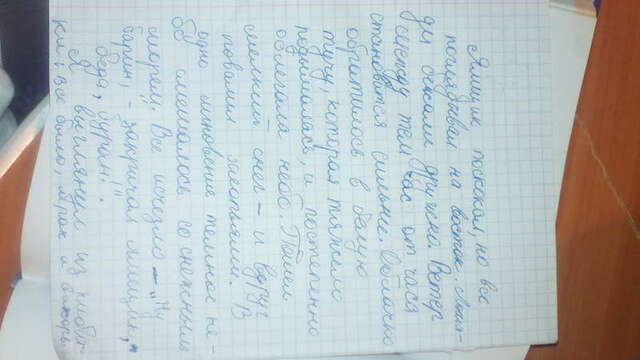 Ямщик поскакал, но все
поглядывал на восток. Лоша-
ди бежали дружно. Ветер
между тем час от часу
становился сильнее. Облачко
обратилось в белую
тучу, которая тяжело
подымалась, и постепенно
облегала небо. Пошел
мелкий снег - и вдруг
повалил хлопьями. В
одно мгновение темное не-
бо смешалось со снежным
морем. Все исчезло - "Ну
барин, - закричал ямщик, -
беда, буран!"
Я выглянул из кибит-
ки: все было, мрак и вихрь